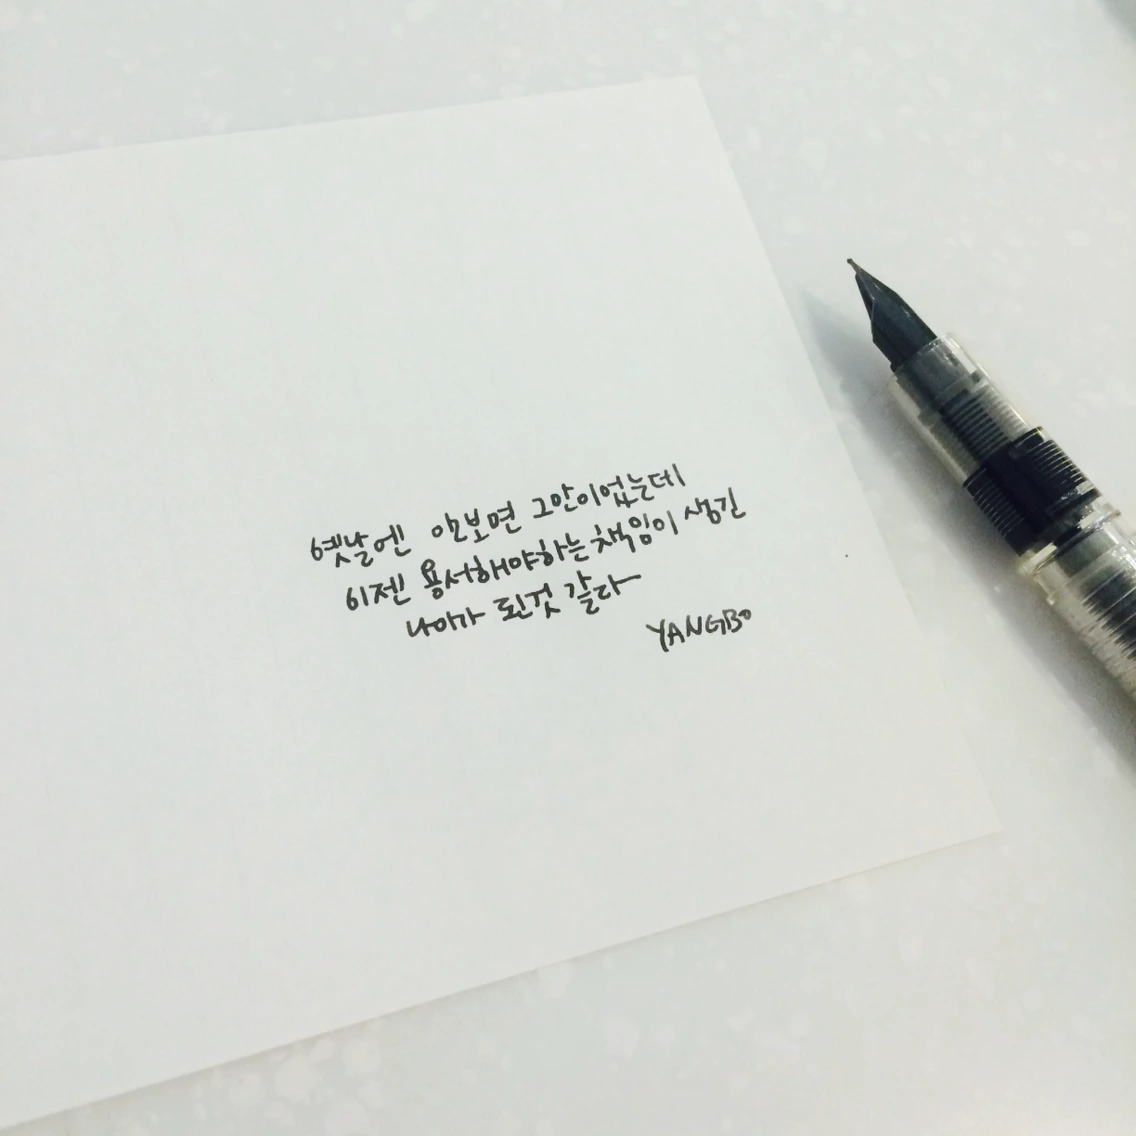 옛날엔 안보면 그만이었는데
이젠 용서해야하는책임이 생긴
나이가 된것 같다
YANGBO